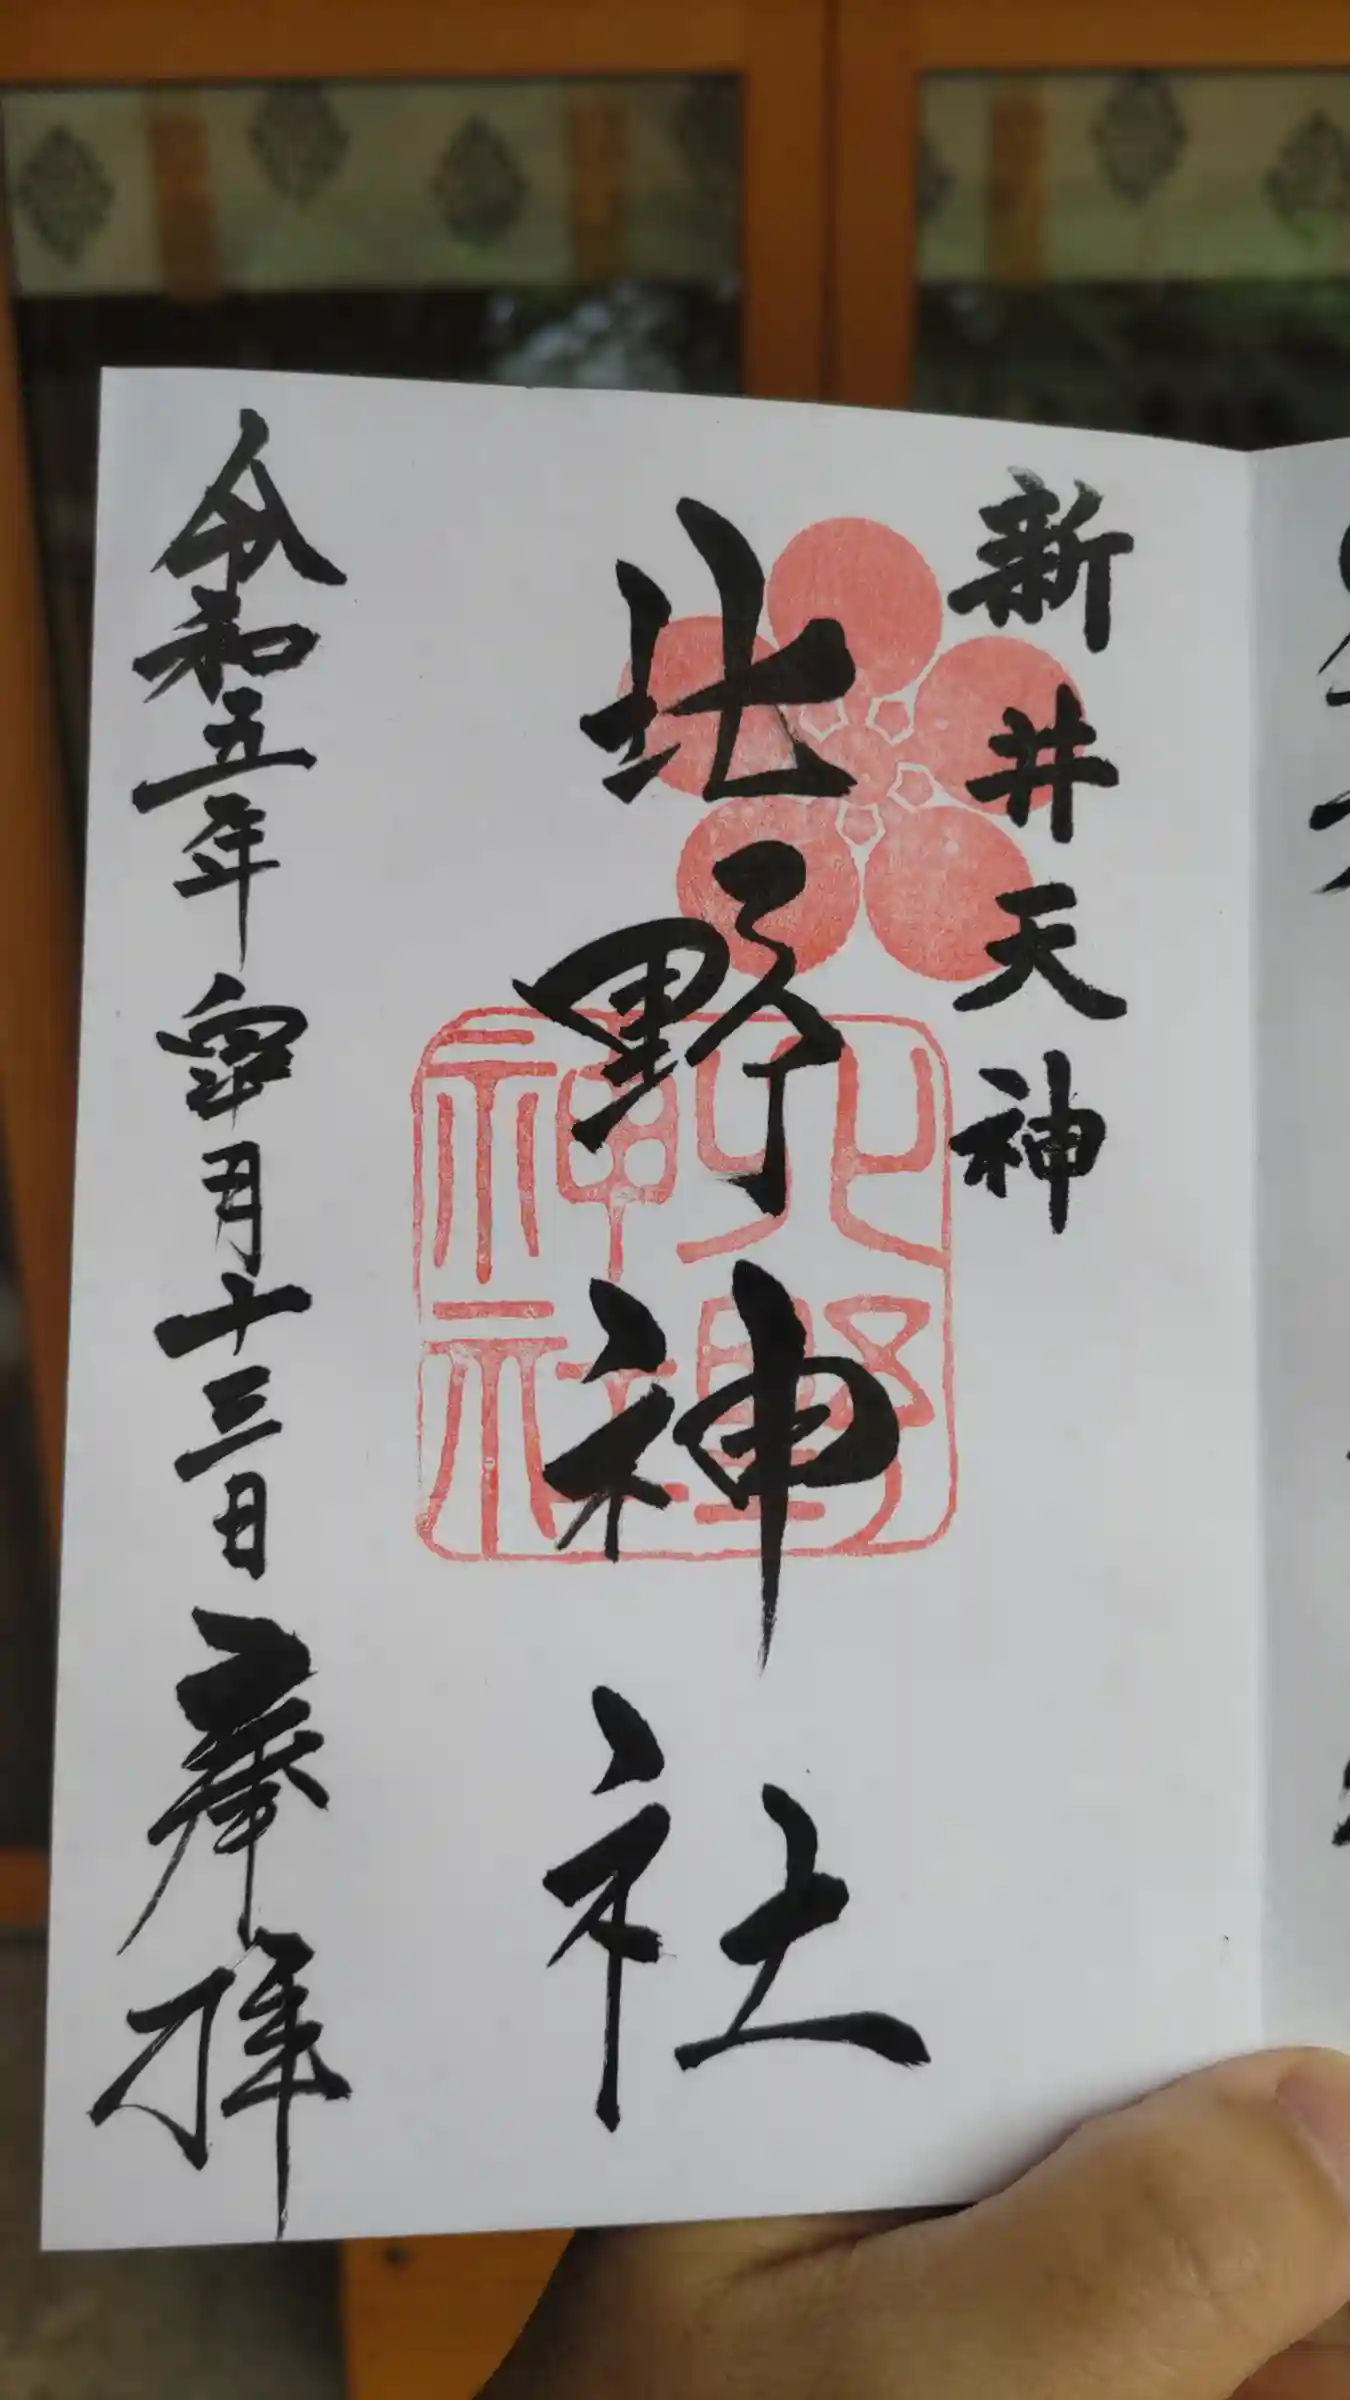 新井天神
北野神社
令和五年皐月十三日奉拝
北野
神社